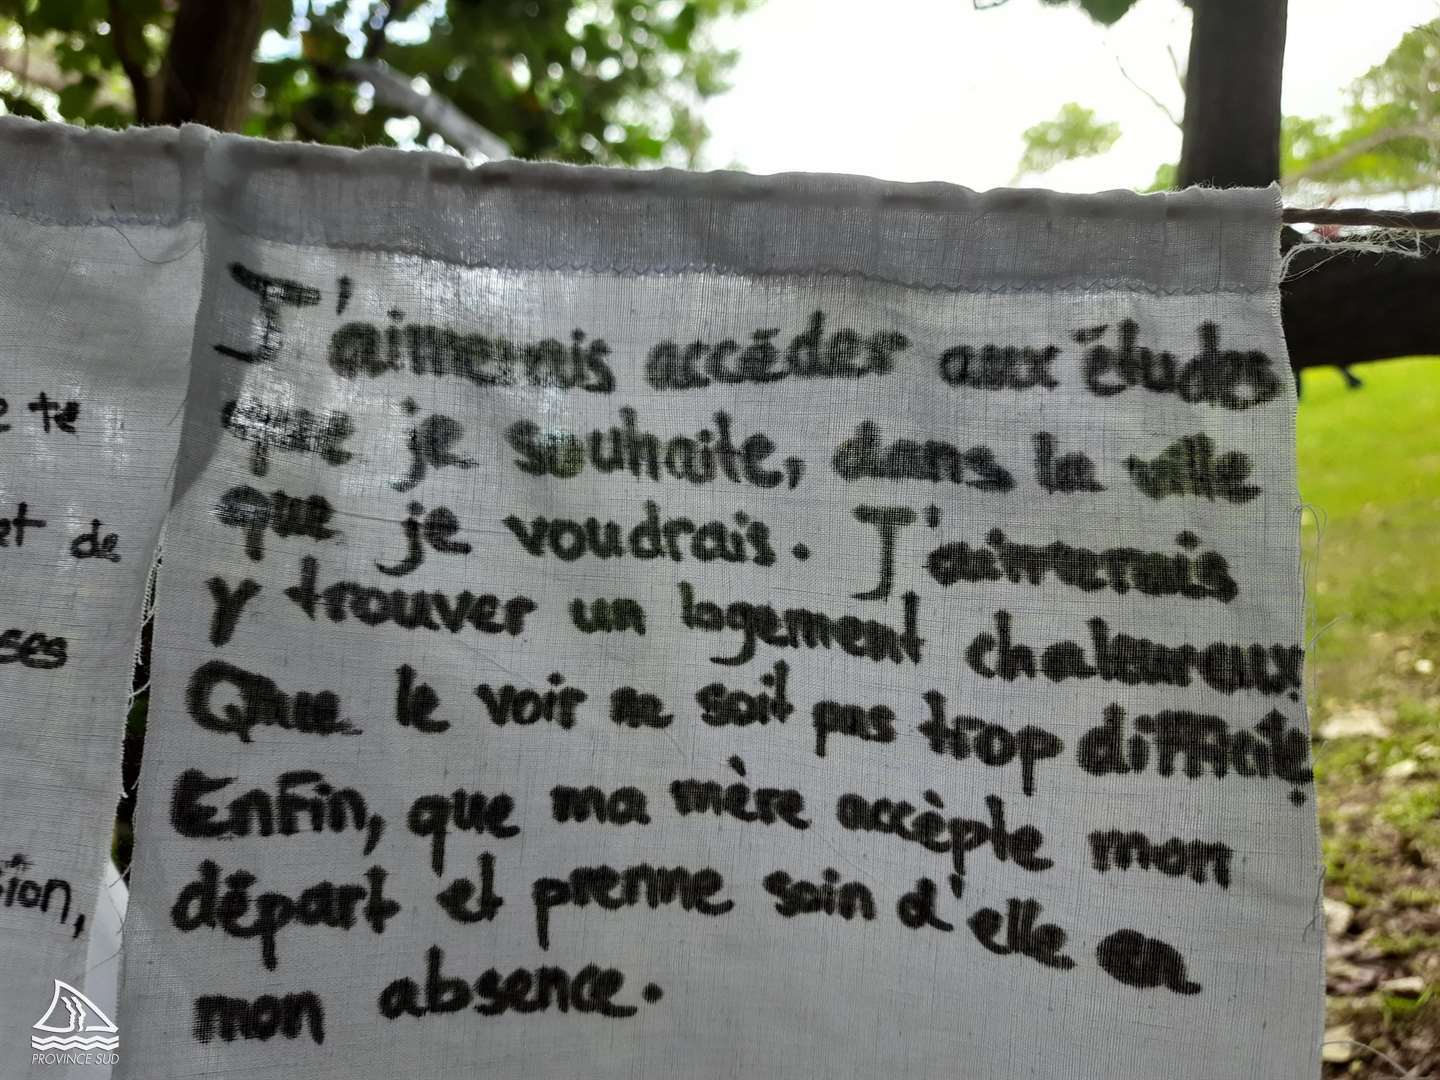 J'aimerais accéder aux études
que je souhaite, dans la ville
que je voudrais. J'aimerais
y trouver un logement chaleureux.
Que le voir ne soit pas trop difficile.
Enfin, que ma mère accèpte mon
départ et prenne soin d'elle en
mon absence.
te
et de
ses
sion,
PROVINCE SUD